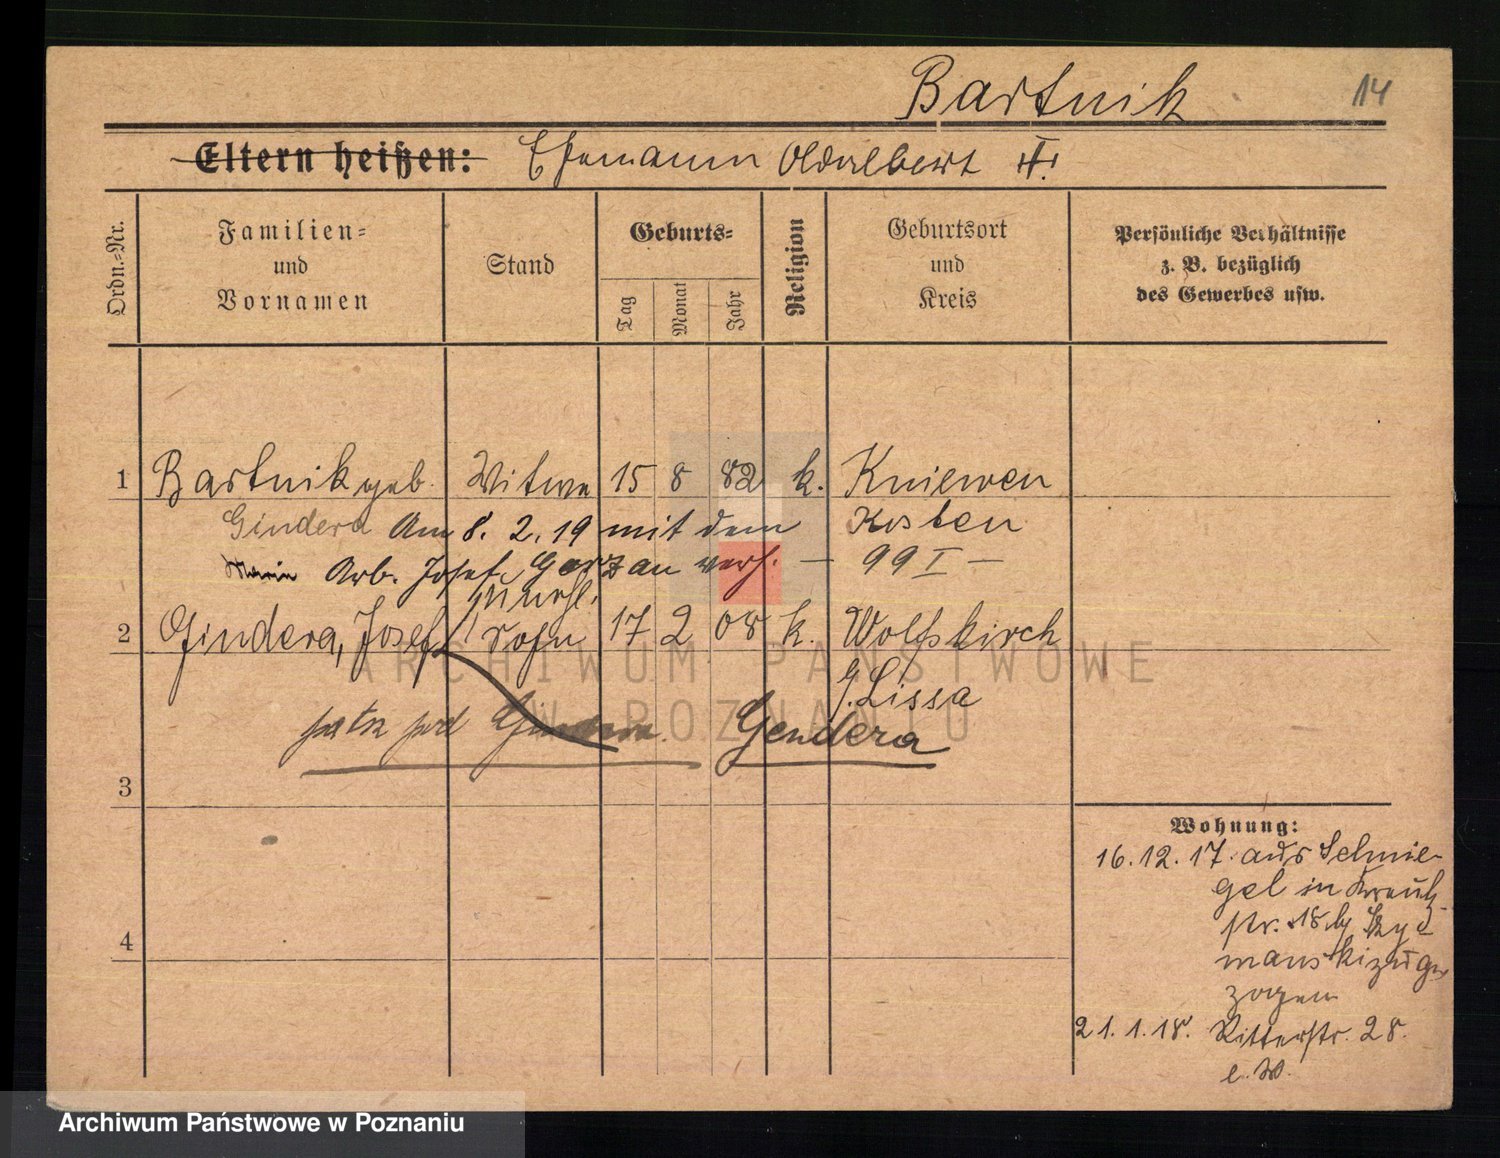 Bartnik 14
Eltern heißen: Ehemann Adalbert
Ordn.-Nr.
Familien-
und
Vornamen
Stand
Geburts-
Tag
Monat
Jahr
Religion
Geburtsort
und
Kreis
Persönliche Verhältnisse
z. B. bezüglich
des Gewerbes usw.
1 Bartnik geb. Witwe 15 8 82 k. Kniewen
Gindera Am 8. 2. 19 mit dem Kosten
Marie Arb. Josef verh. — 99 I —
unehl.
2 Gindera, Josef Sohn 17 2 08 k. Wolfskirch
Lissa
patrz pod Gendera
3
Wohnung:
16. 12. 17. aus Schmie-
gel in Kreuz-
str. 18 b/
manski zuge-
zogen
4
21. 1. 18. Ritterstr. 28.
e. W.
ARCHIWUM PAŃSTWOWE
W POZNANIU
Archiwum Państwowe w Poznaniu